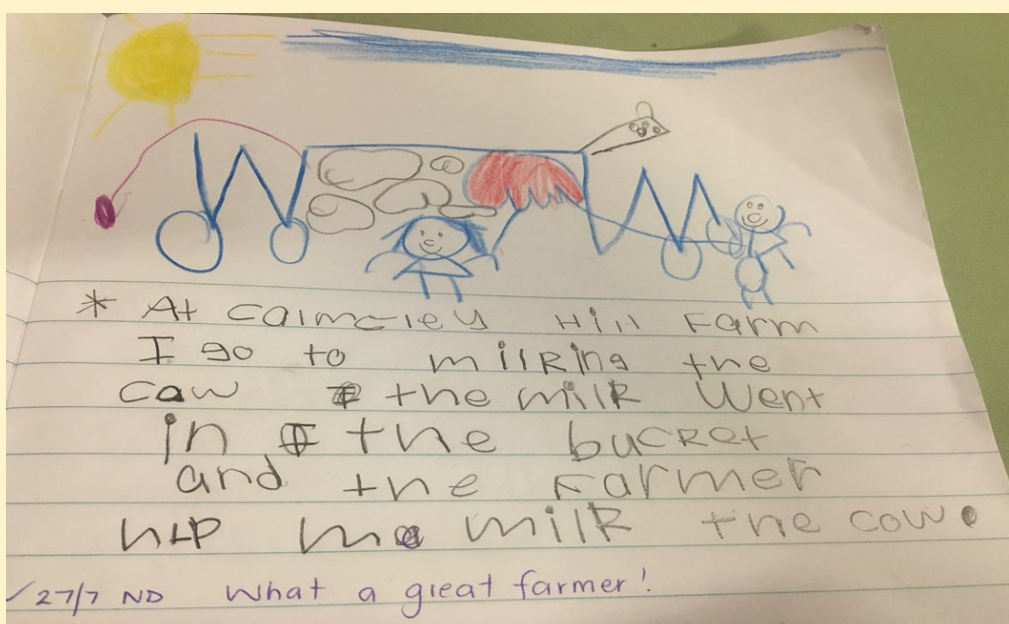 * At Calmcley Hill Farm
I go to milking the
caw the milk went
in the bucket
and the Farmer
hlp me milk the cow.
✓ 27/7 ND What a great farmer!